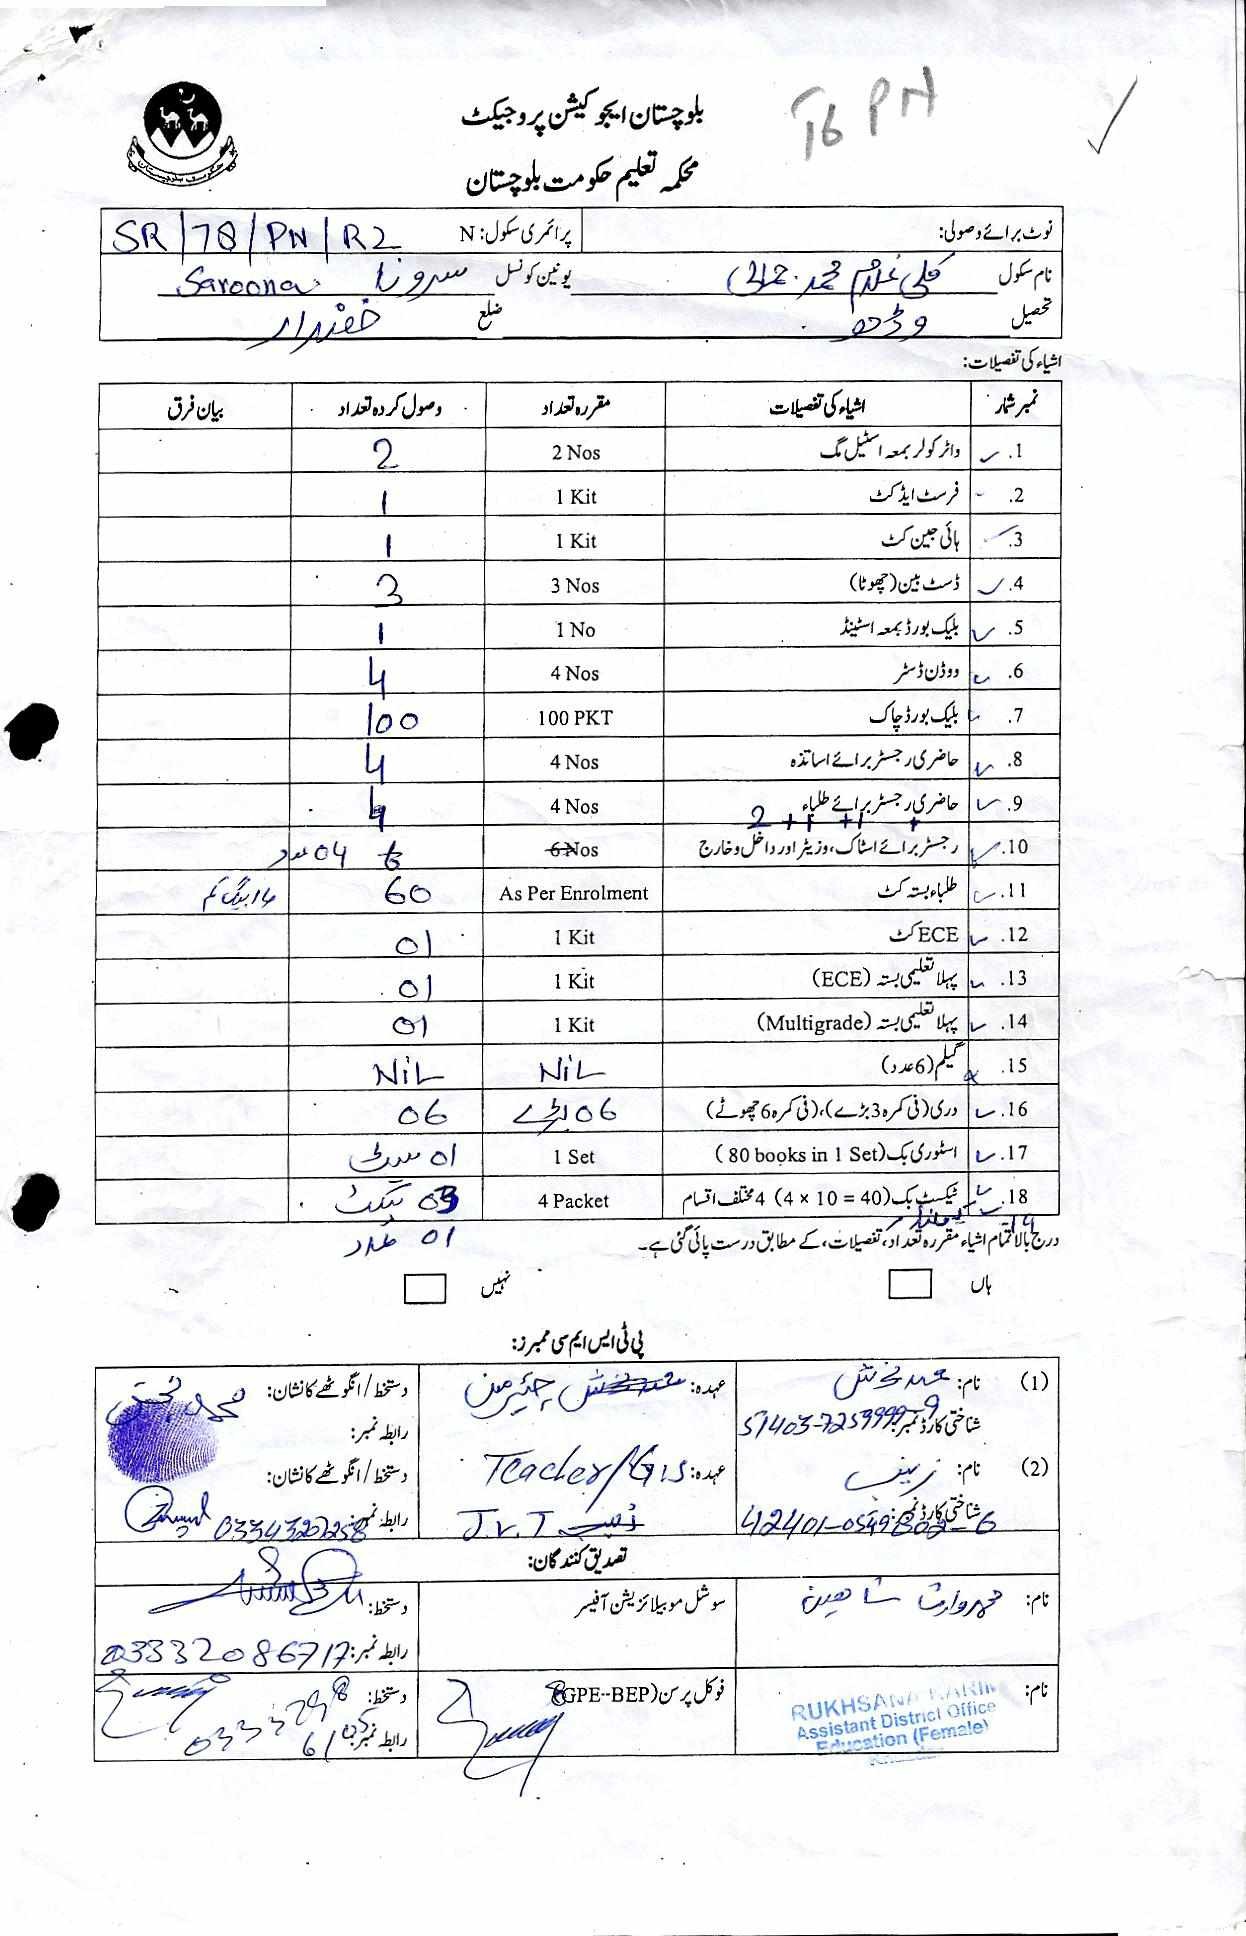 T6 PN
بلوچستان ایجوکیشن پروجیکٹ
محکمہ تعلیم حکومت بلوچستان
حکومت بلوچستان
نوٹ برائے وصولی: پرائمری سکول: N SR/78/PN/R2
نام سکول کلی غلام محمد یونین کونسل سرونا Saroona
تحصیل وڈھ ضلع خضدار
اشیاء کی تفصیلات:
نمبر شمار اشیاء کی تفصیلات مقررہ تعداد وصول کردہ تعداد بیان فرق
1. واٹر کولر بمعہ اسٹیل مگ 2 Nos 2
2. فرسٹ ایڈ کٹ 1 Kit 1
3. ہائی جین کٹ 1 Kit 1
4. ڈسٹ بین (چھوٹا) 3 Nos 3
5. بلیک بورڈ بمعہ اسٹینڈ 1 No 1
6. ووڈن ڈسٹر 4 Nos 4
7. بلیک بورڈ چاک 100 PKT 100
8. حاضری رجسٹر برائے اساتذہ 4 Nos 4
9. حاضری رجسٹر برائے طلباء 4 Nos 4
2 +1 +1
10. رجسٹر برائے اسٹاک، وزیٹر اور داخل و خارج 6 Nos 6 04 عدد
11. طلباء بستہ کٹ As Per Enrolment 60 بیگ کم
12. ECE کٹ 1 Kit 01
13. پہلا تعلیمی بستہ (ECE) 1 Kit 01
14. پہلا تعلیمی بستہ (Multigrade) 1 Kit 01
15. گلیم (6 عدد) NiL NiL
16. دری (فی کمرہ 3 بڑے)، (فی کمرہ 6 چھوٹے) 06 بڑے 06
17. اسٹوری بک (80 books in 1 Set) 1 Set 01 سیٹ
18. ٹیکسٹ بک (4 x 10 = 40) 4 مختلف اقسام 4 Packet 03 پیکٹ
19. 01 عدد
درج بالا تمام اشیاء مقررہ تعداد، تفصیلات، کے مطابق درست پائی گئی ہے۔
ہاں نہیں
پی ٹی ایس ایم سی ممبرز:
(1) نام: محمد بخش عہدہ: چئیرمین دستخط / انگوٹھے کا نشان: محمد بخش
شناختی کارڈ نمبر: رابطہ نمبر:
(2) نام: زینب عہدہ: Teacher/G دستخط / انگوٹھے کا نشان:
شناختی کارڈ نمبر: J.V.T رابطہ نمبر:
تصدیق کنندگان:
نام: محمد وارث شاہین سوشل موبیلائزیشن آفیسر دستخط:
رابطہ نمبر: 03332086717
نام: RUKHSANA KARIM فوکل پرسن (GPE--BEP) دستخط:
Assistant District Office
Education (Female)
رابطہ نمبر: